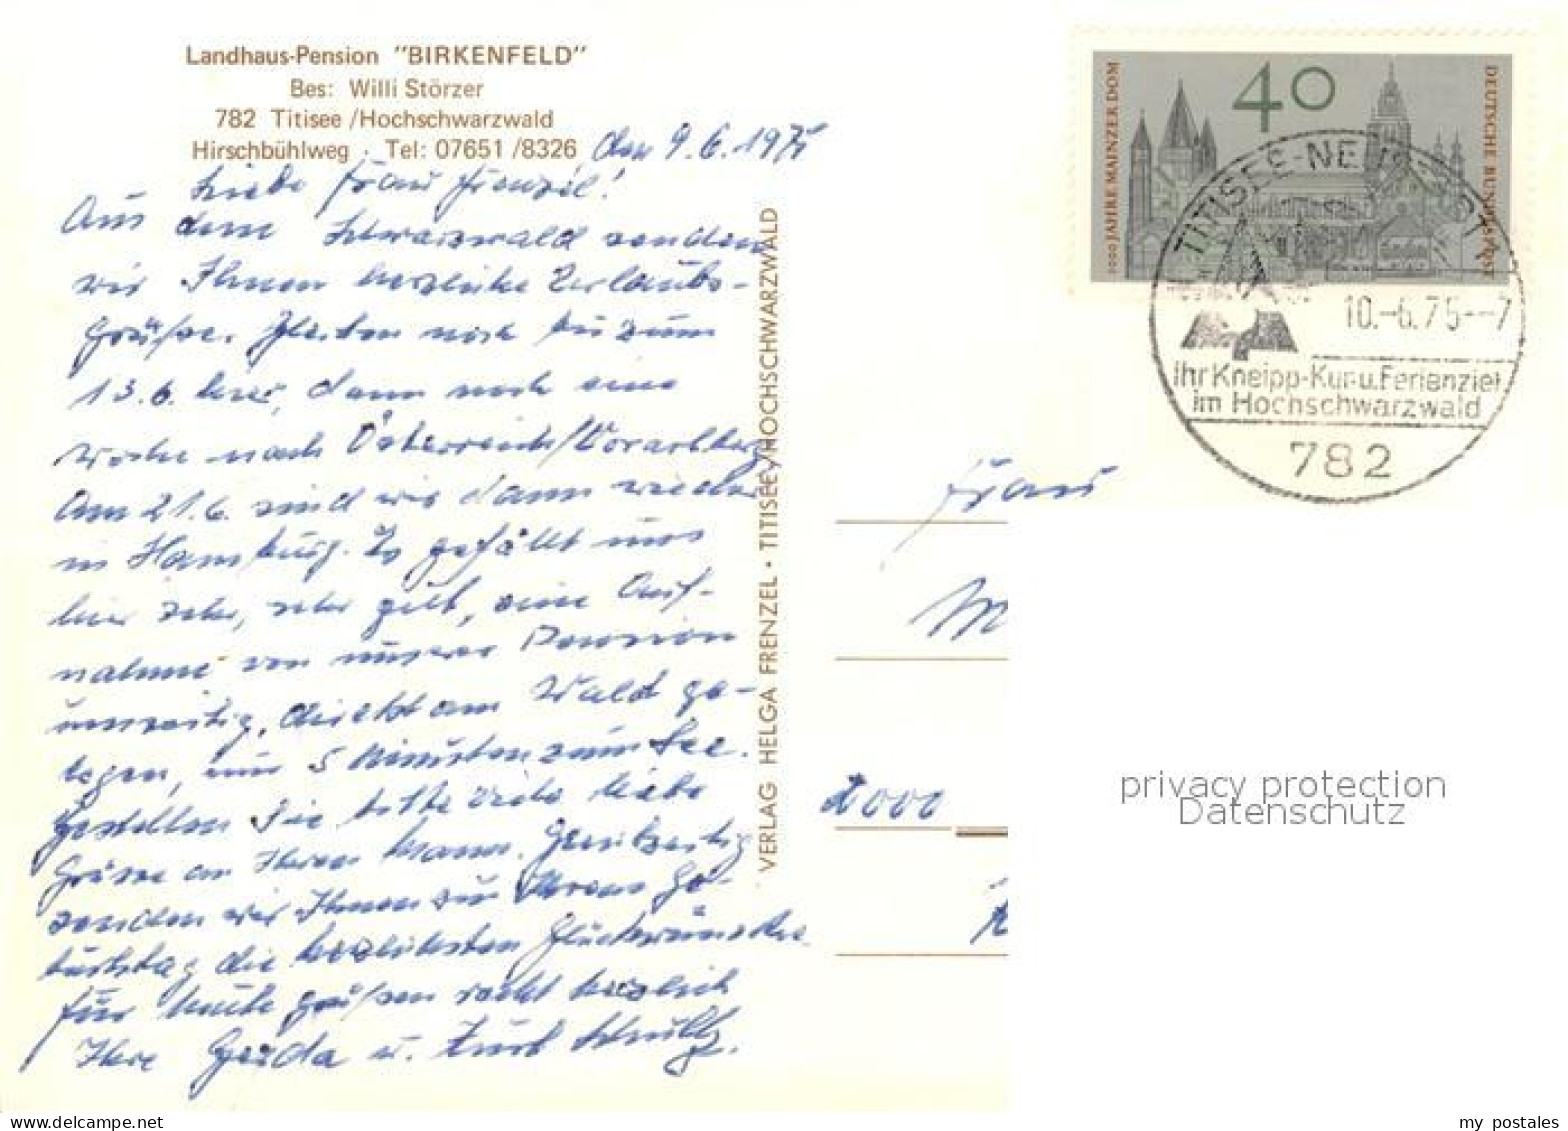 Landhaus-Pension "BIRKENFELD"
Bes: Willi Störzer
782 Titisee /Hochschwarzwald
Hirschbühlweg · Tel: 07651 /8326
den 9.6.1975
Liebe Frau Frenzel!
Aus dem Schwarzwald senden
wir Ihnen herzliche Urlaubs-
grüße. Bleiben noch bis zum
13.6. hier, dann noch eine
Woche nach Österreich/Vorarlberg
Am 21.6. sind wir dann wieder
in Hamburg. Es gefällt uns
hier sehr, sehr gut, eine Auf-
nahme von unserer Pension
umseitig, direkt am Wald ge-
legen, nur 5 Minuten zum See.
Bestellen Sie bitte viele liebe
Grüsse an Ihren Mann. Gleichzeitig
senden wir Ihnen zu Ihrem Ge-
burtstag die herzlichsten Glückwünsche.
Für heute grüßen recht herzlich
Ihre Gerda u. Kurt Schultz.
VERLAG HELGA FRENZEL · TITISEE/HOCHSCHWARZWALD
1000 JAHRE MAINZER DOM
40
DEUTSCHE BUNDESPOST
TITISEE-NEUSTADT
10.-6.75--7
Ihr Kneipp-Kur-u.Ferienziel
im Hochschwarzwald
782
Frau
2000
privacy protection
Datenschutz
my postales